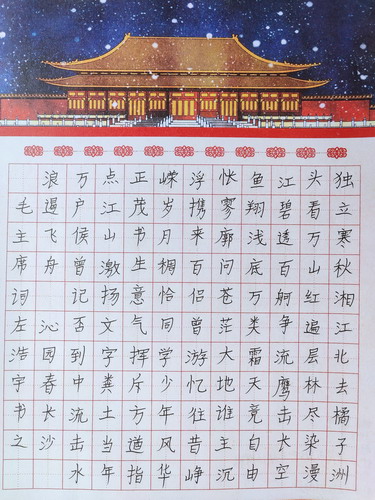 独立寒秋湘江北去橘子洲
头看万山红遍层林尽染漫
江碧透百舸争流鹰击长空
鱼翔浅底万类霜天竞自由
怅寥廓问苍茫大地谁主沉
浮携来百侣曾游忆往昔峥
嵘岁月稠恰同学少年风华
正茂书生意气挥斥方遒指
点江山激扬文字粪土当年
万户侯曾记否到中流击水
浪遏飞舟 沁园春长沙
毛主席词左浩宇书之